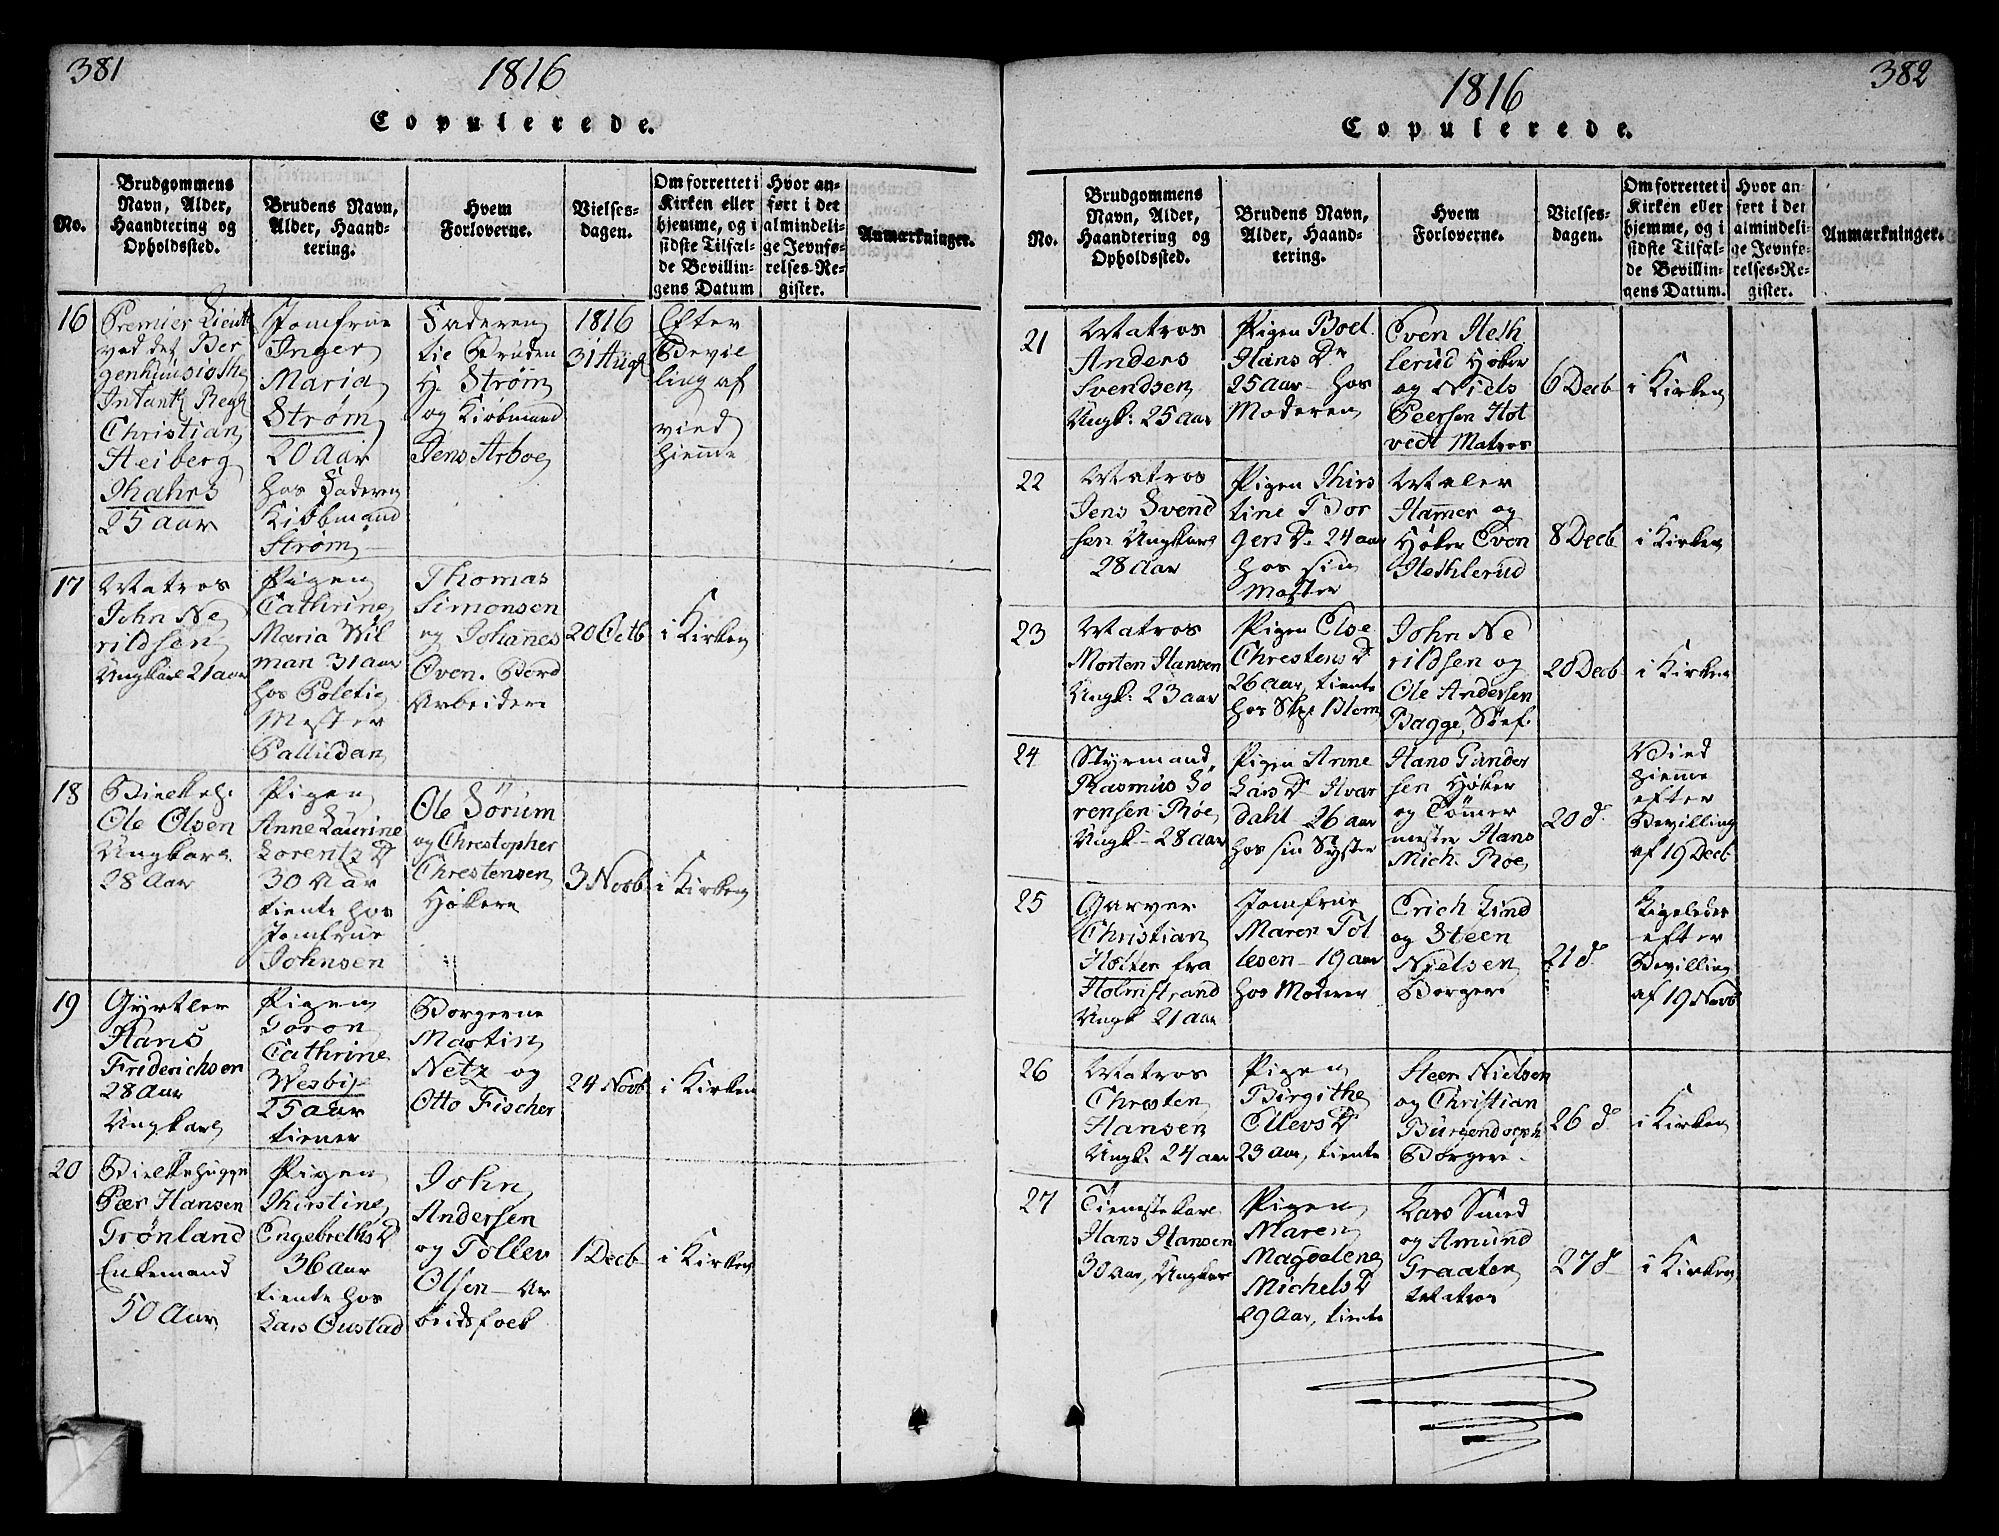 381
1816
Copulerede.
No.
Brudgommens
Navn, Alder,
Haandtering og
Opholdssted.
Brudens Navn,
Alder, Haand-
tering.
Hvem
Forloverne.
Vielses-
dagen.
Om forrettet i
Kirken eller
hjemme, og i
sidste Tilfæl-
de Bevillin-
gens Datum
Hvor an-
ført i det
almindeli-
ge Jevnfø-
relses-Re-
gister.
Anmærkninger.
16
Premier Lieut
ved det Ber
genhuusiske
Infant Regt
Christian
Heiberg
Thahrs
25 aar
Jomfrue
Inger
Maria
Strøm
20 aar
hos Faderen
Kiøbmand
Strøm
Faderen
til Bruden
H. Strøm
og Kiøbmand
Jens Arboe
1816
31 Aug
Efter
Bevil
ling af
vied
hiemme
17
Matros
John Ne
rildsen
Ungkarl 21 aar
Pigen
Cathrine
Maria Wil
man 31 aar
hos Politie
Mester
Palludan
Thomas
Simonsen
og Johannes
Oven. Bord
Arbeidere
20 Octb
i Kirken
18
Ole Olsen
Ungkarl
28 Aar
Pigen
Anne Laurine
Lorentz D
30 Aar
tiente hos
Jomfrue
Johnsen
Ole Sörum
og Christopher
Chrestensen
Høkere
3 Novb
i Kirken
19
Gyrtler
Hans
Friderichsen
28 Aar
Ungkarl
Pigen
Goron
Cathrine
Wesby
25 aar
tiener
Borgerne
Martin
Netz og
Otto Fischer
24 Novb
i Kirken
20
Bielkehugge
Pær Hansen
Grønland
Enkemand
50 Aar
Pigen
Thirstine
Engebreths D
36 aar
tiente hos
Lars Oustad
John
Andersen
og Tollev
Olsen - Ar
beidsfolk
1 Decb
i Kirken
382
1816
Copulerede.
No.
Brudgommens
Navn, Alder,
Haandtering og
Opholdssted.
Brudens Navn,
Alder, Haand-
tering.
Hvem
Forloverne.
Vielses-
dagen.
Om forrettet i
Kirken eller
hjemme, og i
sidste Tilfæl-
de Bevillin-
gens Datum.
Hvor an-
ført i det
almindeli-
ge Jevnfø-
relses-Re-
gister.
Anmærkninger.
21
Matros
Anders
Svendsen
Ungk: 25 aar
Pigen Boel
Hans Dr
25 aar - hos
Moderen
Even Heth
lerud Høker
og Niels
Peersen Hot
vedt Matros
6 Decb
i Kirken
22
Matros
Jens Svend
sen Ungkarl
28 Aar
Pigen Thirs
tine Bor
gers D. 24 aar
hos sin
Moster
Maler
Hammer og
Høker Even
Hethlerud
8 Decb
i Kirken
23
Matros
Morten Hansen
Ungk: 23 aar
Pigen Else
Chrestens D
26 aar, tiente
hos Skp Blom
John Ne
rildsen og
Ole Andersen
Bagge, Søef.
20 Decb
i Kirken
24
Styrmand
Rasmus Sö
rensen Röe
Ungk - 28 aar
Pigen Anne
Lars D Hvar
dahl 26 aar
hos sin Syster
Hans Gunder
sen Høker
og Tömmer
mester Hans
Mich. Röe
20 d.
Vied
hiemme
efter
Bevilling
af 19 Decb
25
Garver
Christian
Holter fra
Holmstrand
Ungk 21 aar
Jomfrue
Maren Tol
lesen - 19 aar
hos Moderen
Erich Lind
og Steen
Nielsen
Borgere
21 d.
Ligeledes
efter
Bevilling
af 19 Novb
26
Matros
Chresten
Hansen
Ungk. 24 aar
Pigen
Birgithe
Ellevs D
23 aar, tiente
Steen Nielsen
og Christian
Burgendorph
Borgere -
26 d.
i Kirken
27
Tienestekarl
Hans Hansen
30 aar, Ungkarl
Pigen
Maren
Magdalene
Michels D
29 Aar, tiente
Lars Smed
og Amund
Graaten
Matros
27 d
i Kirken